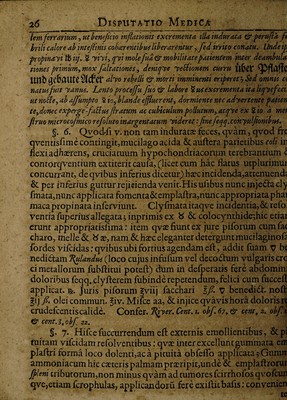 26 DISPUTATIO MEDICA
tem ferrarium, ut beneficio inflationis excrementa illa indurata & perusta
brili calore ab intestinis cohærentibus liberarentur, sed irrito conatu. Unde
propinavi & v, qui mole suâ & mobilitate patientem inter deambula
tiones primum, mox saltationes, denique vectionem curru über Pflaster
und gebaute Acker alvo rebelli & morti imminenti eriperet; Sed omnis
natus fuit vanus. Lento processu suo & labore excrementa ita liquefeci
ut nocte, ab assumpto, blande effluerent, dormiente nec advertente patien
to, donec experge-factus stratum as cubiculum pollutum, atque à mo
struo microcosmico resolutum margentarum viderit: sine seqq. convulsionibus.
§. 6. Quodsi v. non tam induratæ feces, quàm, quod fre
quentissimè contingit, mucilago acida & austera parietibus coli in
flexi adhærens, cruciatuum hypochondriacorum terebrantium &
contorquentium extiterit causa, (licet cum hâc flatus ut plurimùm
concurrant, de qvibus inferius dicetur) hæc incidenda, attenuanda
& per inferius guttur rejicienda venit. His usibus nunc injecta cly
smata, nunc applicata fomenta & emplastra, nunc appropriata phar
maca propinata inserviunt. Clysmata itaqve incidentia, & resol
ventia superius allegata; inprimis ex & colocynthide; hîc etiam
erunt appropriatissima: item quæ fiunt ex jure pisorum cum sac
charo, melle & hæc eleganter detergunt mucilaginosas
sordes viscidas: qvibus ubi fortius agendum est, addit
nedictam Rulandus (loco cujus infusum vel decoctum vulgaris cro
ci metallorum substitui potest) dum in desperatis ferè abdominis
doloribus seqq. clysterem subindè repetendum, felici cum successu
applicat. Juris pisorum sacchari ʒß. benedict. nost.
olei commun. Misce aa, & injice qvâvis horâ doloris re
crudescentis calidè. Confer. River. Cent. 2. obs. 67. & cent. 2. obs.
& cent. 1. obs. 22.
§. 7. Hisce succurrendum est externis emollientibus, & pi
tuitam viscidam resolventibus: qvæ inter excellunt gummata em
plastri formâ loco dolenti, ac à pituitâ obsesso applicata; Gummi
ammoniacum hîc cæteris palmam præripit, unde & emplastrorum
tributorum, non minus quàm ad tumores scirrhosos qvoscun
qve, etiam scrophulas, applicandorum ferè existit basis: convenienter